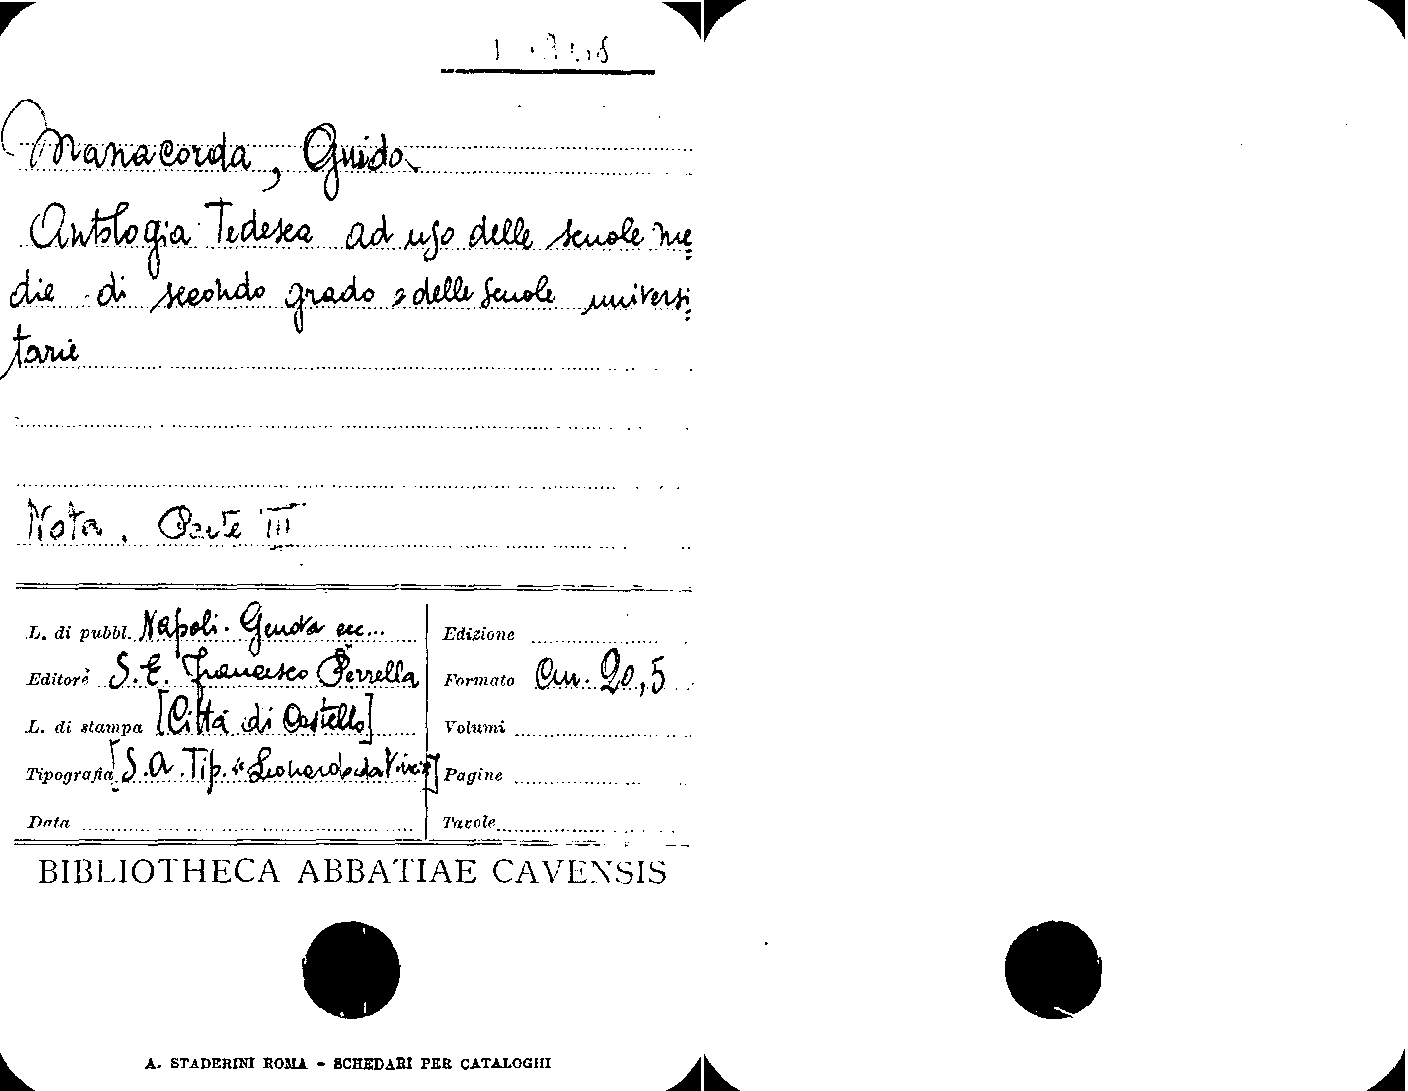 Manacorda, Guido
Antologia Tedesca ad uso delle scuole me=
die di secondo grado e delle scuole universi=
tarie
Nota. Parte III
L. di pubbl. Napoli. Genova ecc...
Edizione
Editore S. E. Francesco Perrella
Formato cm. 20,5
L. di stampa [Città di Castello]
Volumi
Tipografia [S.A. Tip. "Leonardo da Vinci"]
Pagine
Data
Tavole
BIBLIOTHECA ABBATIAE CAVENSIS
A. STADERINI ROMA - SCHEDARI PER CATALOGHI